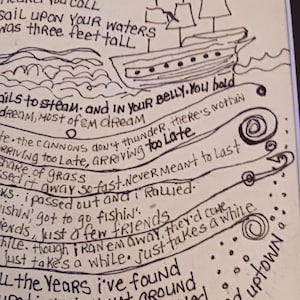 you call
sail upon your waters
was three feet tall
ails to steam. and in your belly. you hold
dream, most of em dream
fe. the cannons don't thunder, there's nothin
arriving too late, arriving too late.
shake of grass
ssed it away so fast. never meant to last
ks. i passed out and i rallied.
fishin'. got to go fishin'.
iends, just a few friends
while. though i ran em away. they'd come
just takes a while. just takes a while
ll the years i've found
around
uptown